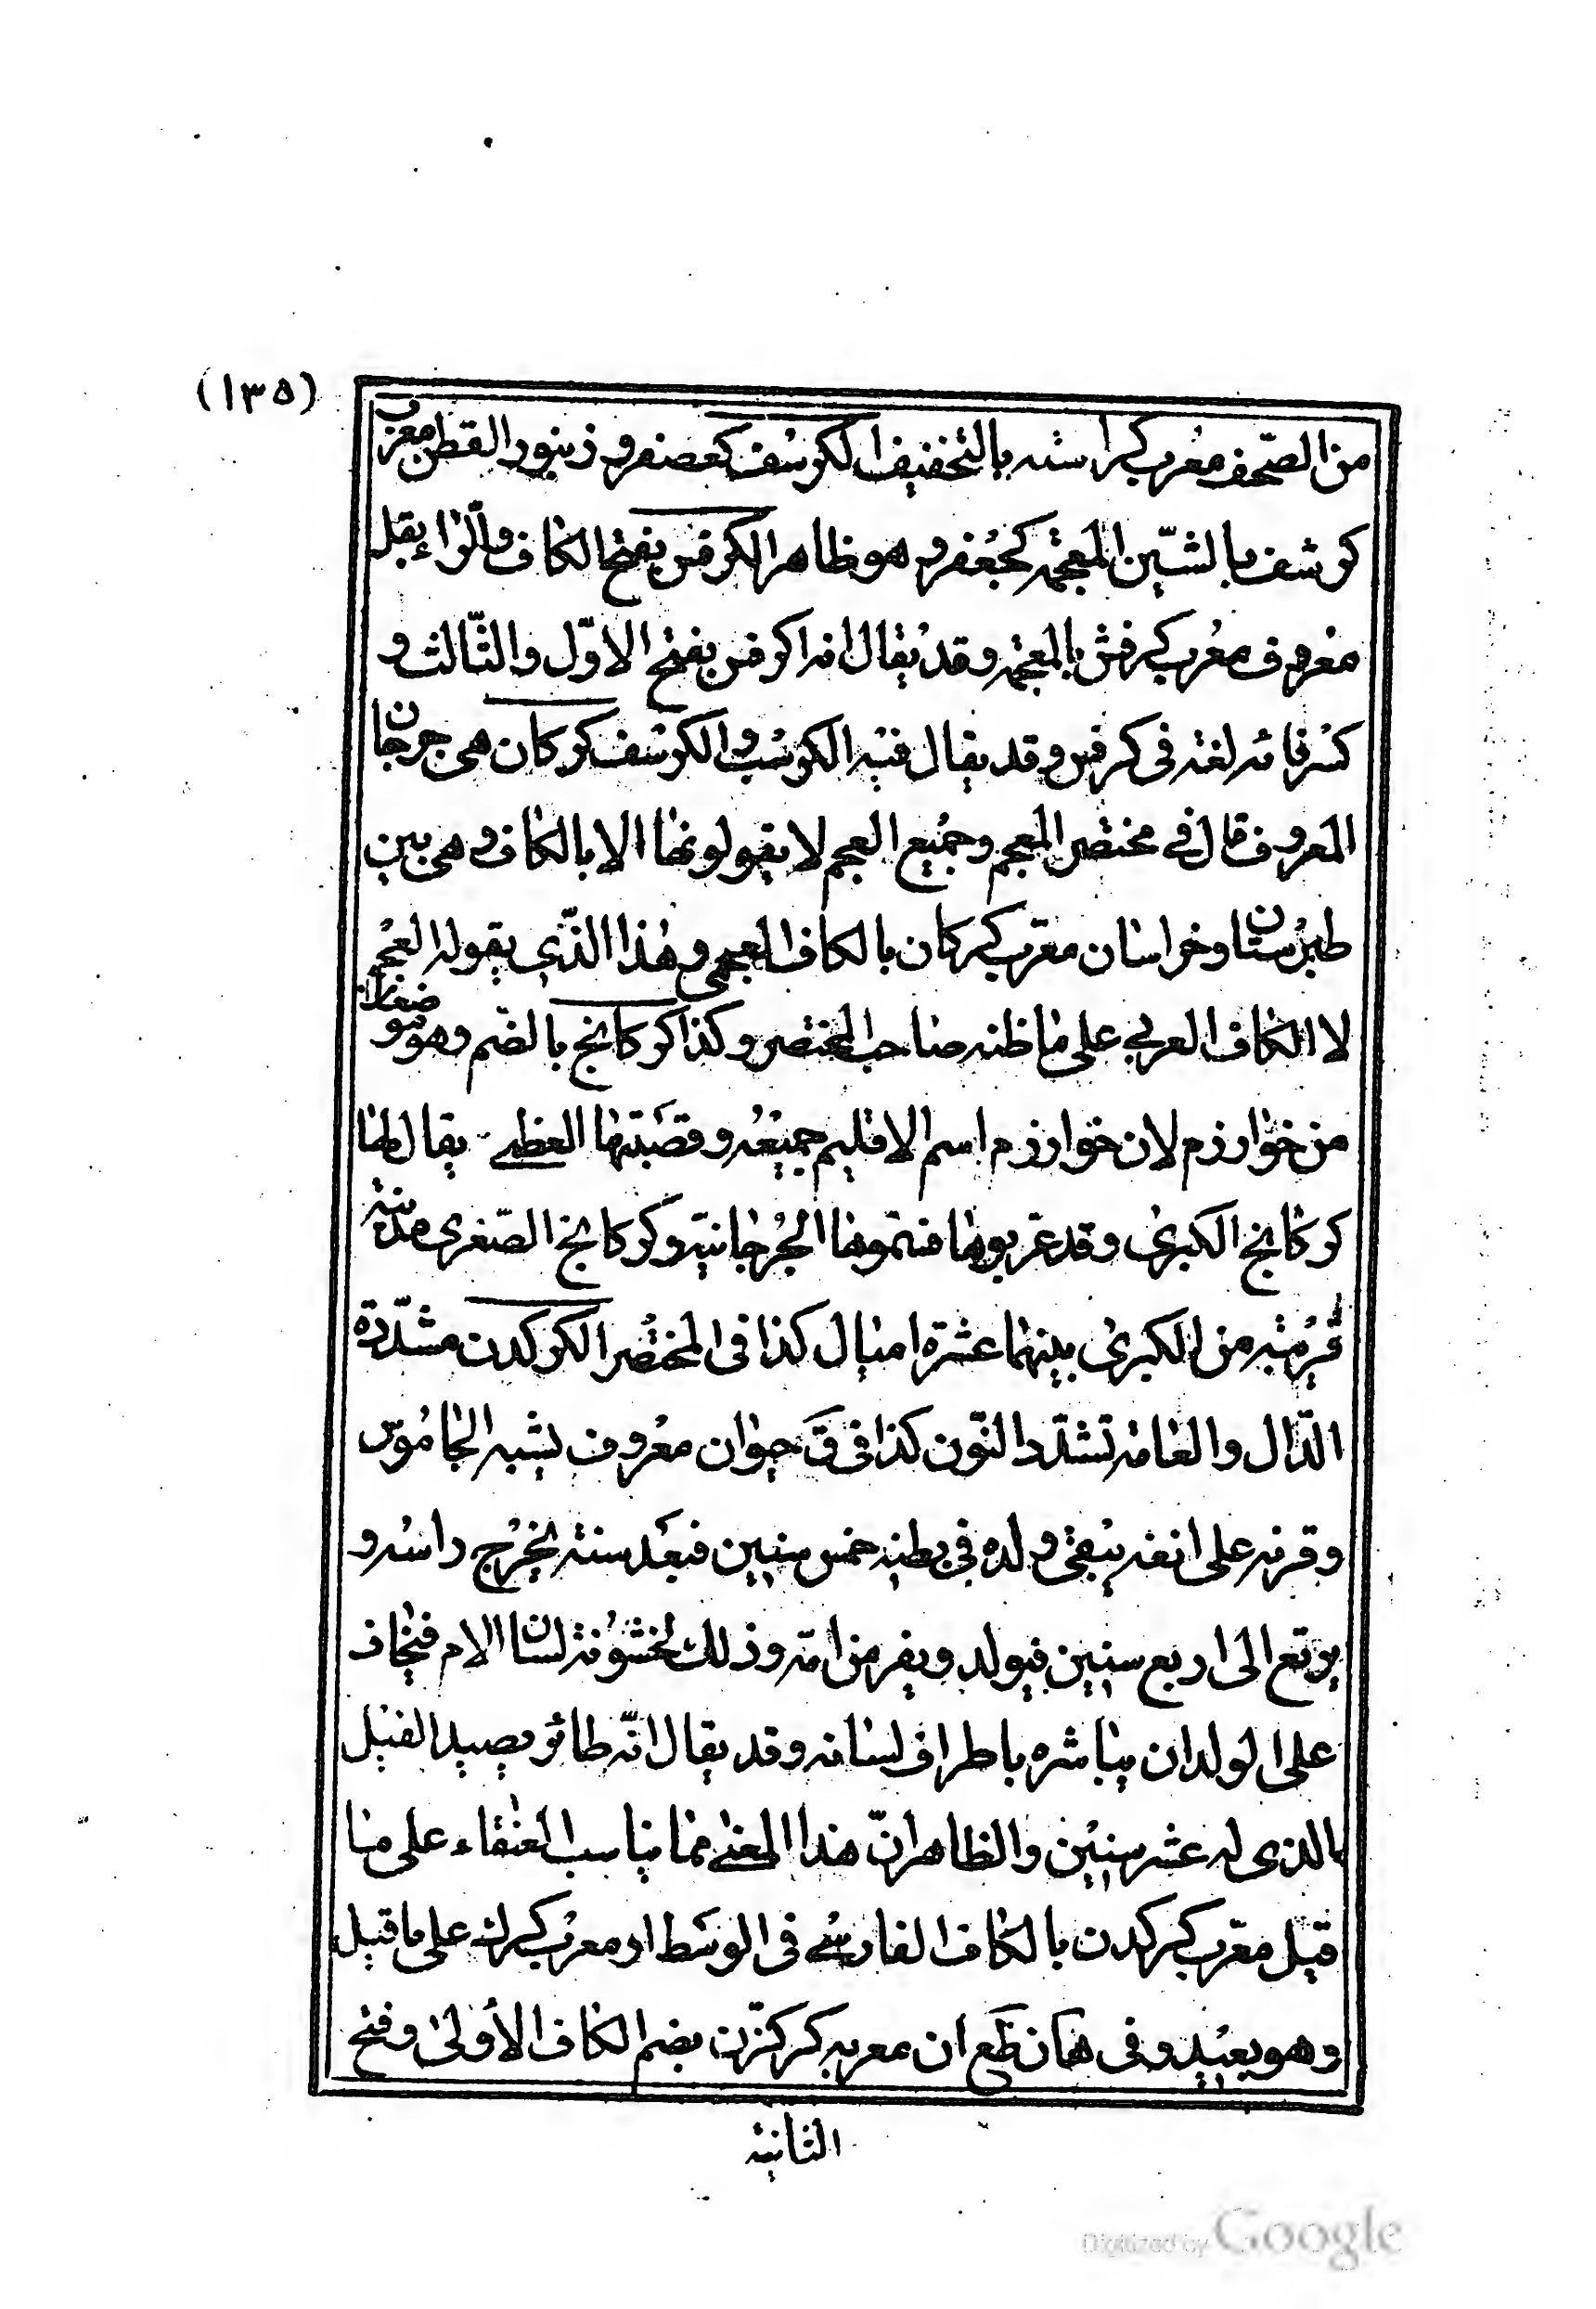 (١٣٥)
من الصّحف معرب كراسته بالتخفيف الكرسف كعصفر و زنبور القطن معرب
كرشف بالشّين المعجمة كجعفر و هو ظاهر الكرفس بفتح الكاف والرّاء بقل
معروف معرب كرفش بالمعجمة وقد يقال انه اكرفس بفتح الاوّل والثّالث و
كسر فائه لغة فى كرفس وقد يقال فيه الكرسب والكرسف كركان هى جرجان
المعروف قال في مختصر المعجم وجميع العجم لا يقولونها الا بالكاف وهى بين
طبرستان وخراسان معرّب كركان بالكاف العجمى وهذا الذّي يقوله العجم
لا الكاف العربي على ما ظنه صاحب المختصر وكذا كركانج بالضّم وهو
من خوارزم لان خوارزم اسم الاقليم جميعه وقصبتها العظمى يقال لها
كركانج الكبرى وقد عربوها فسموها الجرجانية وكركانج الصّغرى مدينة
قريبة من الكبرى بينهما عشرة اميال كذا فى المختصر الكركدن مشدّدة
الدّال والعامة تشدّد النّون كذا فى ق حيوان معروف يشبه الجاموس
وقرنه على انفه يبقى ولده في بطنه خمس سنين فبعد سنة يخرج راسه و
يرتع الى اربع سنين فيولد ويفر من امّه وذلك لخشونة لسان الام فيخاف
على الولد ان يباشره باطراف لسانه وقد يقال انّه طائر يصيد الفيل
بالذى له عشر سنين والظاهر انّ هذا المعنى مما يناسب العنقاء على ما
قيل معرّب كركدن بالكاف الفارسي فى الوسط او معرب على ما قيل
وهو بعيد وفى هان قطع ان معربه كركزن بضم الكاف الأولى وفتح
الثانية
Digitized by Google